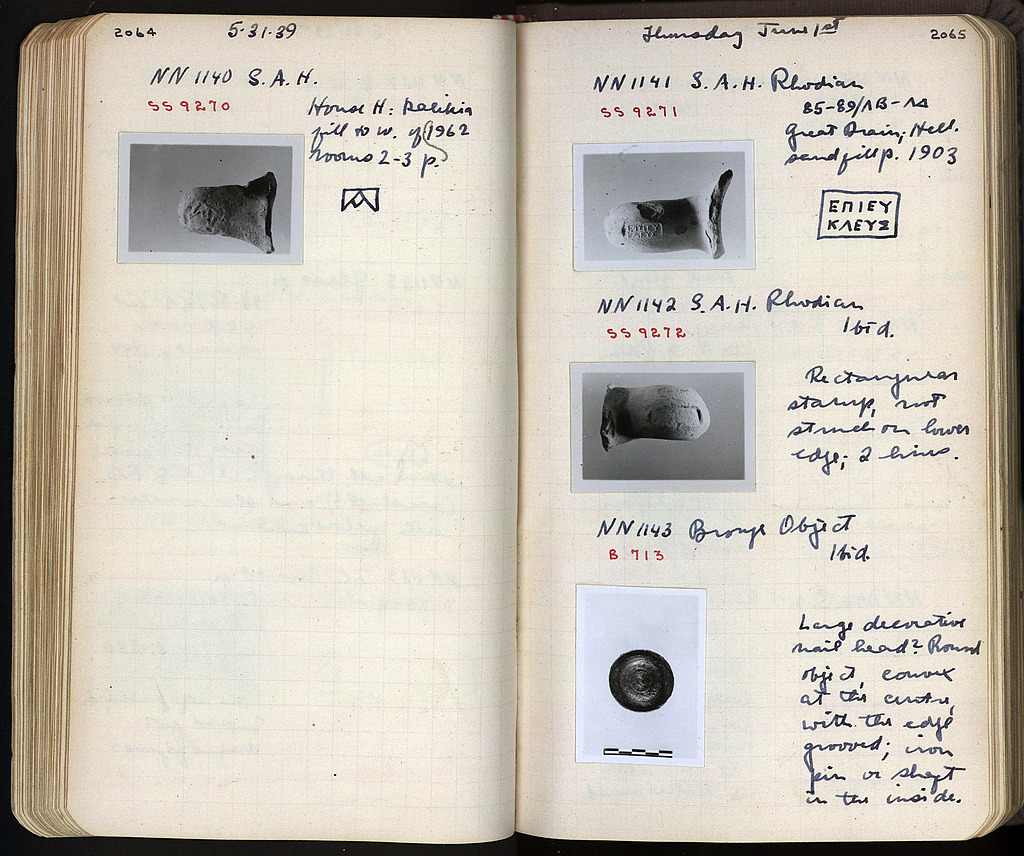 2064
5-31-39
NN 1140 S.A.H.
SS 9270
House H:
fill to w. of 1962
rooms 2-3 p.
Thursday June 1st
2065
NN 1141 S.A.H. Rhodian
SS 9271
85-89/ΛΒ-ΛΔ
Great Drain; Hell.
sand fill p. 1903
ΕΠΙΕΥ
ΚΛΕΥΣ
NN 1142 S.A.H. Rhodian
SS 9272
Ibid.
Rectangular
stamp, not
struck on lower
edge; 2 lines.
NN 1143 Bronze Object
B 713
Ibid.
Large decorative
nail head? Round
object, convex
at the centre,
with the edge
grooved; iron
pin or shaft
in the inside.